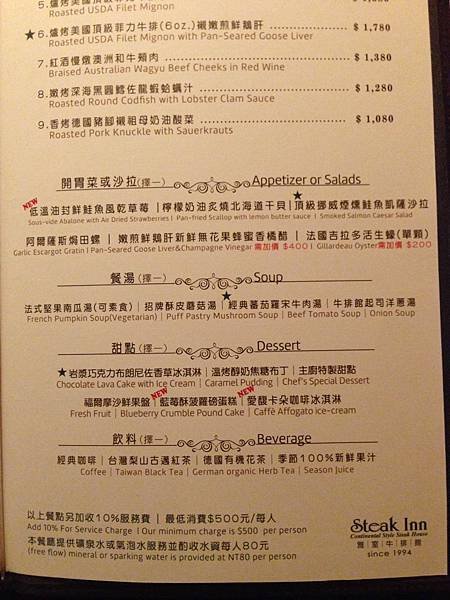 Roasted USDA Filet Mignon
★6.爐烤美國頂級菲力牛排(6oz.)襯嫩煎鮮鵝肝 $ 1,780
Roasted USDA Filet Mignon with Pan-Seared Goose Liver
7.紅酒慢燉澳洲和牛頰肉 $ 1,380
Braised Australian Wagyu Beef Cheeks in Red Wine
8.嫩烤深海黑圓鱈佐龍蝦蛤蠣汁 $ 1,280
Roasted Round Codfish with Lobster Clam Sauce
9.香烤德國豬腳襯祖母奶油酸菜 $ 1,080
Roasted Pork Knuckle with Sauerkrauts
開胃菜或沙拉(擇一) Appetizer or Salads
NEW 低溫油封鮮鮭魚風乾草莓 | 檸檬奶油炙燒北海道干貝 | ★頂級挪威煙燻鮭魚凱薩沙拉
Sous-vide Abalone with Air Dried Strawberries | Pan-fried Scallop with lemon butter sauce | Smoked Salmon Caesar Salad
阿爾薩斯焗田螺 | 嫩煎鮮鵝肝新鮮無花果蜂蜜香橘醋 | 法國吉拉多活生蠔(單顆)
Garlic Escargot Gratin | Pan-Seared Goose Liver&Champagne Vinegar 需加價 $400 | Gillardeau Oyster需加價 $200
餐湯(擇一) Soup
法式堅果南瓜湯(可素食) | 招牌酥皮蘑菇湯 | ★經典蕃茄羅宋牛肉湯 | 牛排館起司洋蔥湯
French Pumpkin Soup(Vegetarian) | Puff Pastry Mushroom Soup | Beef Tomato Soup | Onion Soup
甜點(擇一) Dessert
★岩漿巧克力布朗尼佐香草冰淇淋 | 溫烤醇奶焦糖布丁 | 主廚特製甜點
Chocolate Lava Cake with Ice Cream | Caramel Pudding | Chef's Special Dessert
福爾摩沙鮮果盤 | NEW 藍莓酥菠蘿磅蛋糕 | NEW 愛馥卡朵咖啡冰淇淋
Fresh Fruit | Blueberry Crumble Pound Cake | Caffè Affogato ice-cream
飲料(擇一) Beverage
經典咖啡 | 台灣梨山古邁紅茶 | 德國有機花茶 | 季節100%新鮮果汁
Coffee | Taiwan Black Tea | German organic Herb Tea | Season Juice
以上餐點另加收10%服務費 | 最低消費$500元/每人
Add 10% For Service Charge | Our minimum charge is $500 per person
本餐廳提供礦泉水或氣泡水服務並酌收水資每人80元
(free flow) mineral or sparking water is provided at NT80 per person
Steak Inn
Continental Style Steak House
雅室牛排館
since 1994